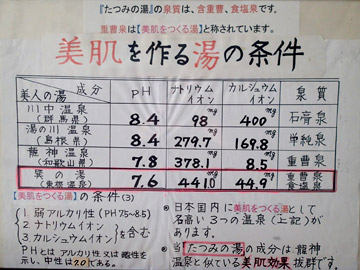 『たつみの湯』の泉質は、含重曹、食塩泉です。
重曹泉は【美肌をつくる湯】と称されています。
美肌を作る湯の条件
美人の湯 成分 PH ナトリウムイオン カルシュウムイオン 泉質
川中温泉(群馬県) 8.4 98mg 400mg 石膏泉
湯の川温泉(島根県) 8.4 279.7mg 169.8mg 単純泉
龍神温泉(和歌山県) 7.8 378.1mg 8.5mg 重曹泉
巽の湯(東根温泉) 7.6 441.0mg 44.9mg 重曹食塩泉
【美肌をつくる湯】の条件(3)
1. 弱アルカリ性(PH7.5~8.5)
2. ナトリウムイオン
3. カルシュウムイオン
を含む
PHとは アルカリ性又は酸性を
示し、中性は7.0である。
日本国内に【美肌をつくる湯】として
名高い3つの温泉(上記)が
あります。
当【たつみの湯】の成分は龍神
温泉と似ている美肌効果抜群です。